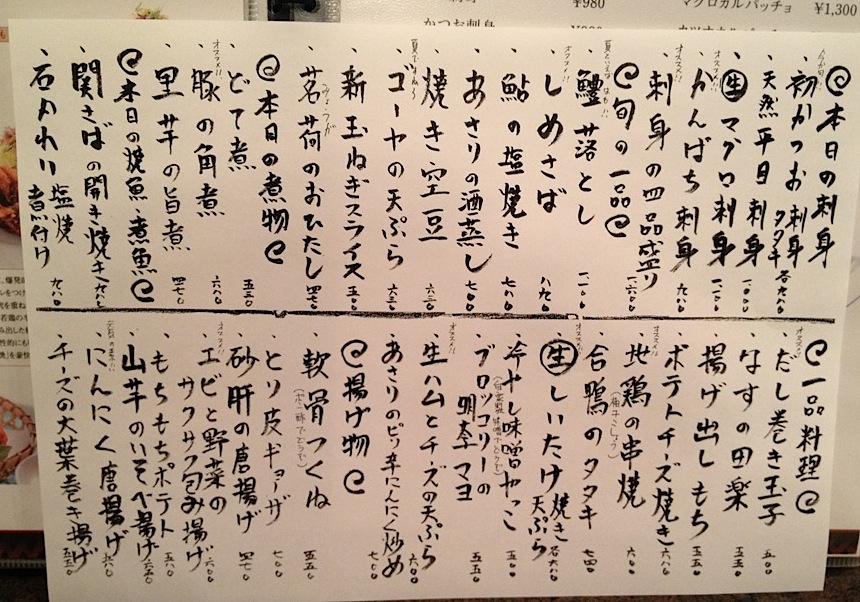 ¥980
マグロカルパッチョ ¥1,300
かつお刺身
本日の刺身
今が旬!!
初かつお 刺身 タタキ 各九八〇
天然平目刺身 一二〇〇
オススメ!!
生マグロ刺身 一二〇〇
オススメ!!
かんぱち刺身 九八〇
刺身の四品盛り 一六〇〇
旬の一品
鱧落とし 一一〇〇
オススメ!!
しめさば 八九〇
鮎の塩焼き 七八〇
あさりの酒蒸し 七〇〇
焼き空豆 六三〇
ゴーヤの天ぷら 六三〇
新玉ねぎスライス 五〇〇
みょうが
茗荷のおひたし 四七〇
本日の煮物
どて煮 五三〇
オススメ!!
豚の角煮 六八〇
里芋の旨煮 四七〇
本日の焼魚・煮魚
関さばの開き焼き 九八〇
石がれい 塩焼 煮付け 九八〇
一品料理
オススメ!!
だし巻き玉子 五〇〇
なすの田楽 五五〇
揚げ出しもち 五五〇
ポテトチーズ焼き 六八〇
オススメ!!
地鶏の串焼 (柚子こしょう) 六〇〇
合鴨のタタキ 七四〇
オススメ!!
生しいたけ 焼き 天ぷら 各六八〇
冷やし味噌やっこ 五〇〇
ブロッコリーの明太マヨ 五五〇
オススメ!!
生ハムとチーズの天ぷら 六〇〇
あさりのピリ辛にんにく炒め 七〇〇
揚げ物
軟骨つくね (ポン酢でどうぞ) 五五〇
とり皮ギョーザ 七〇〇
砂肝の唐揚げ 四七〇
オススメ!!
エビと野菜のサクサク包み揚げ 六〇〇
もちもちポテト 五八〇
山芋のいそべ揚げ 六五〇
にんにく唐揚げ
チーズの大葉巻き揚げ 五五〇